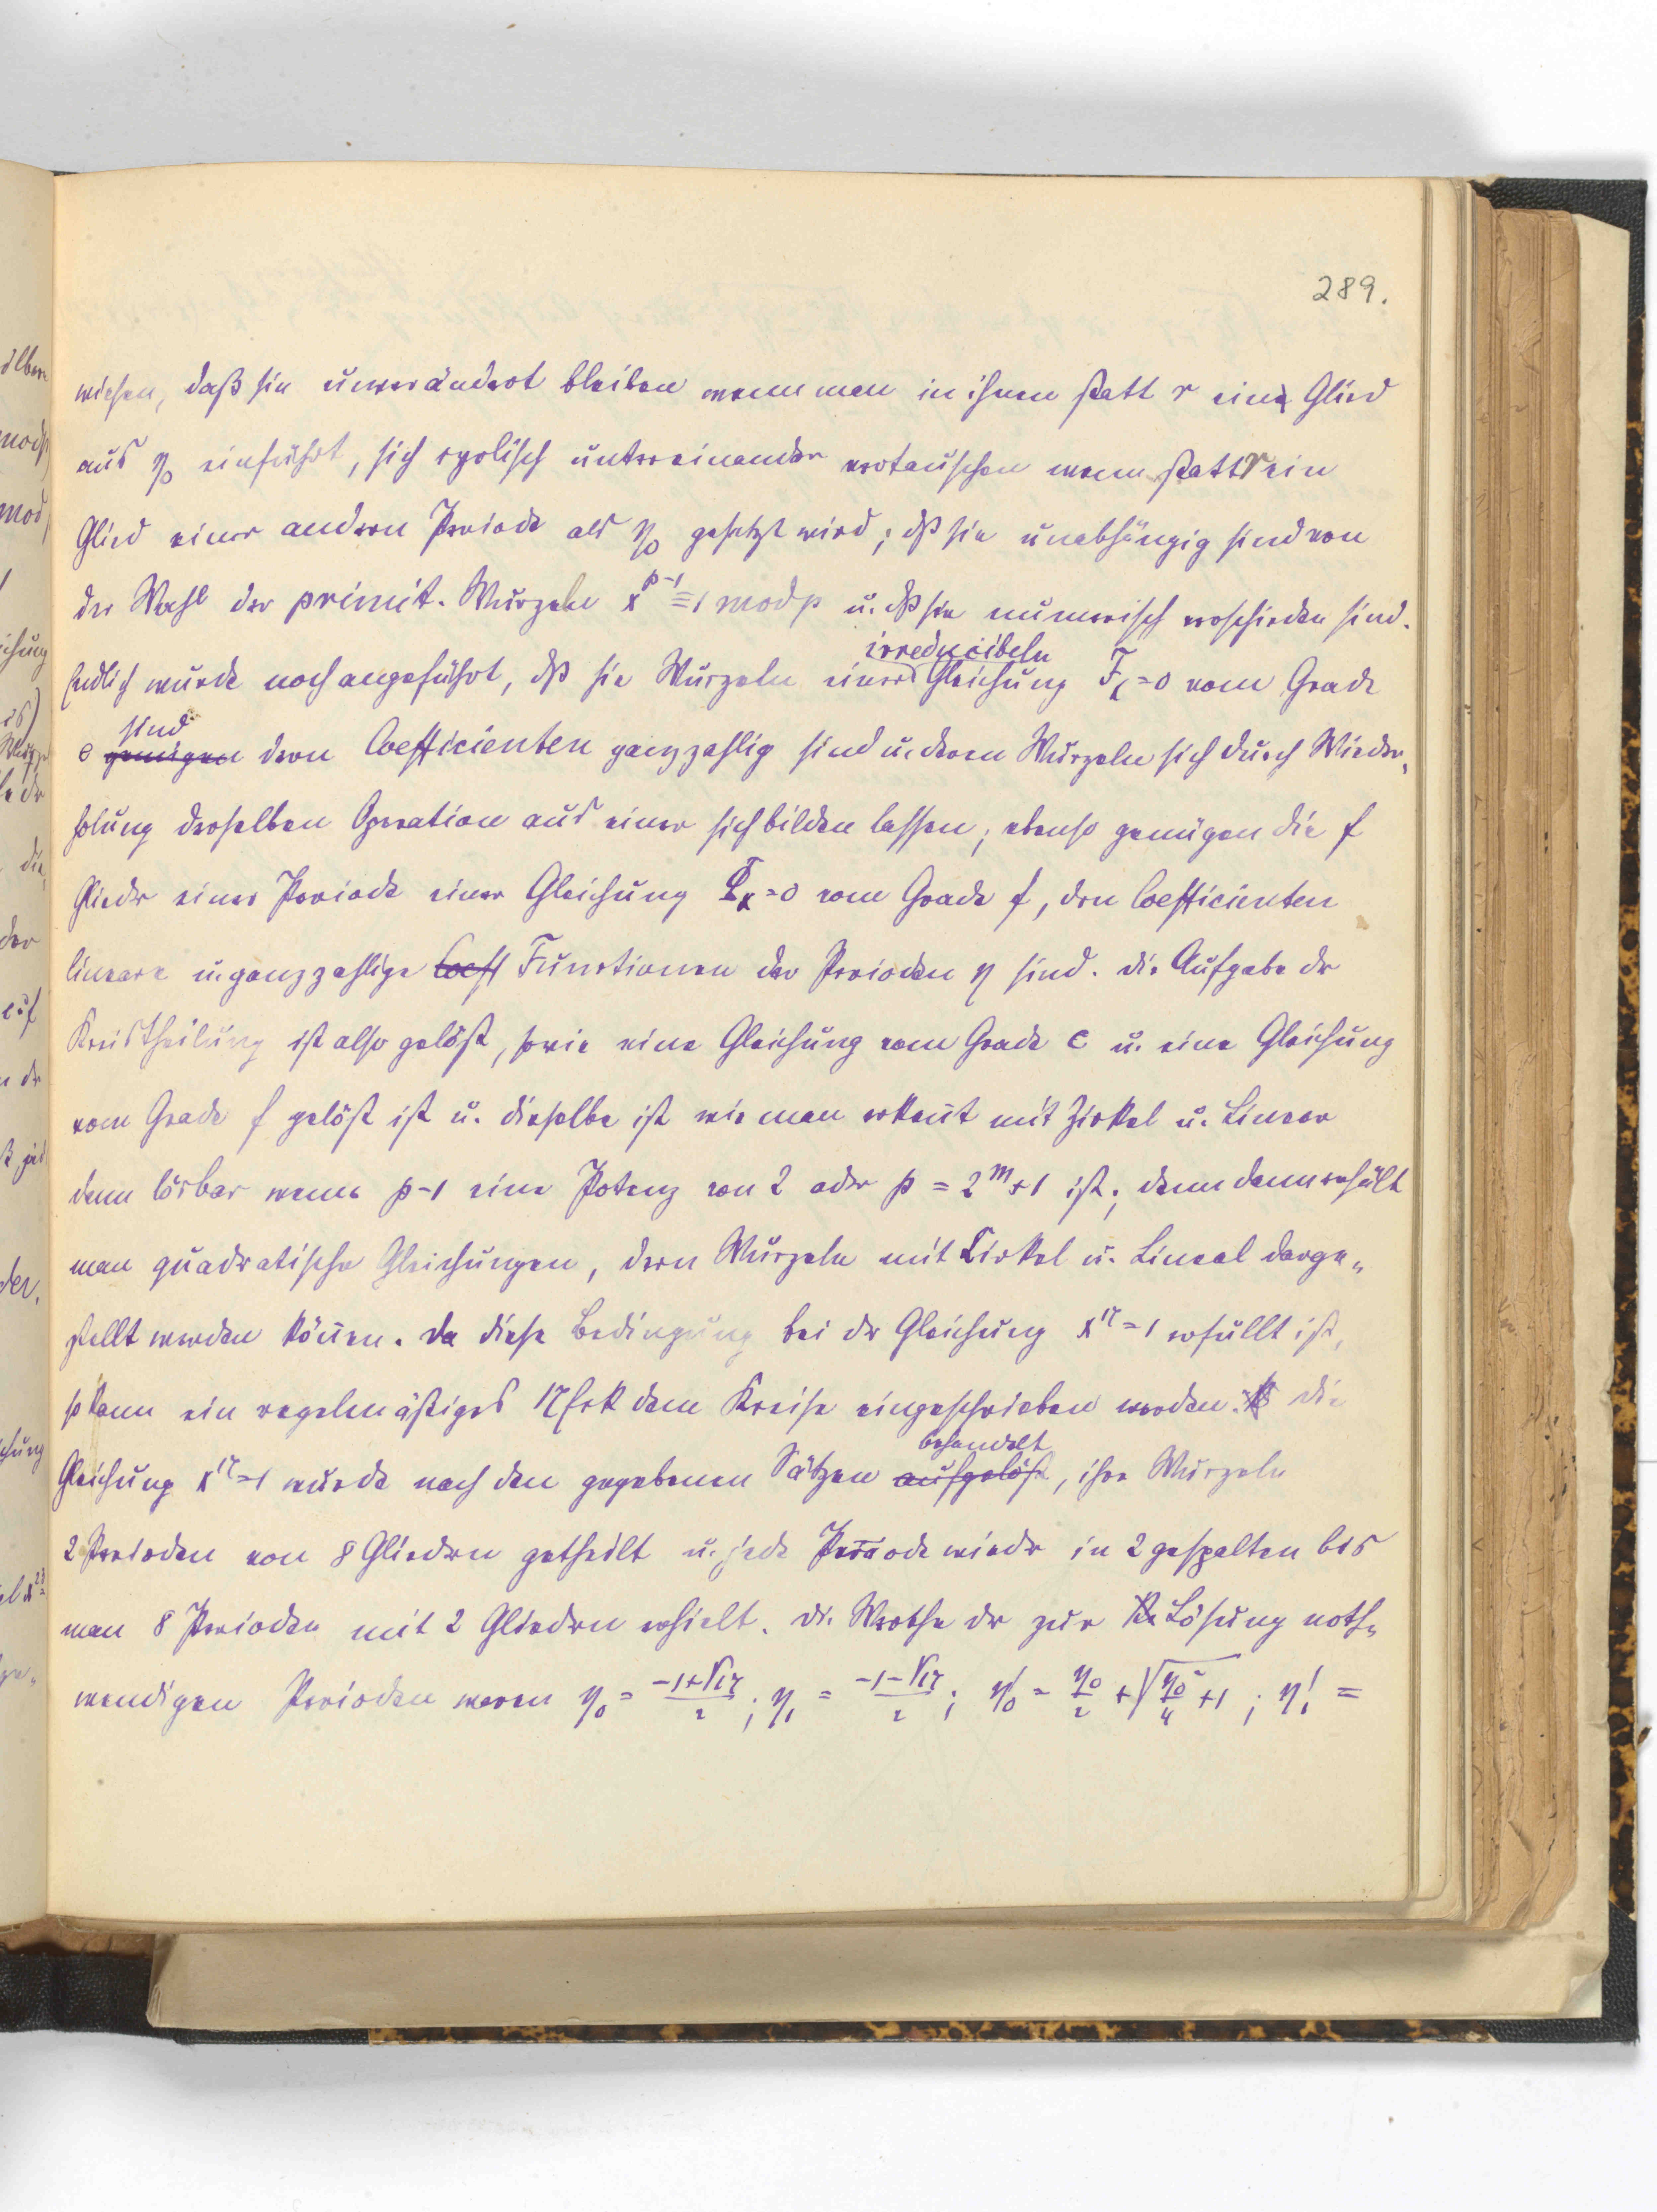 289.
wiesen, daß sie unverändert bleiben wenn man in ihnen statt r ein Glied
aus η₀ einführt, sich cyclisch untereinander vertauschen wenn statt r ein
Glied einer andern Periode als η₀ gesetzt wird; dß sie unabhängig sind von
der Wahl der primit. Wurzeln x^{p-1} ≡ 1 mod p u. dß sie numerisch verschieden sind.
Endlich wurde noch angeführt, dß sie Wurzeln einer irreducibeln Gleichung Fₓ=0 vom Grade
e sind deren Coefficienten ganzzahlig sind u. deren Wurzeln sich durch Wieder„
holung derselben Operation aus einer sich bilden lassen; ebenso genügen die f
Glieder einer Periode einer Gleichung Φₓ=0 vom Grade f, deren Coefficienten
lineare u. ganzzahlige Functionen der Perioden η sind. die Aufgabe der
Kreistheilung ist also gelöst, sowie eine Gleichung vom Grade e u. eine Gleichung
vom Grade f gelöst ist u. dieselbe ist wie man erkennt mit Zirkel u. Linear
dann lösbar wenn p-1 eine Potenz von 2 oder p = 2^m+1 ist; denn dann erhält
man quadratische Gleichungen, deren Wurzeln mit Cirkel u. Lineal darge„
stellt werden können. da diese Bedingung bei der Gleichung x^{17}=1 erfüllt ist,
so kann ein regelmäßiges 17Eck dem Kreise eingeschrieben werden. die
Gleichung x^{17}=1 wurde nach den gegebenen Sätzen behandelt, ihre Wurzeln
2 Perioden von 8 Gliedern getheilt u. jede Periode wieder in 2 gespalten bis
man 8 Perioden mit 2 Gliedern erhielt. die Werthe der zur Lösung noth„
wendigen Perioden waren η₀ = (-1+√17)/2; η₁ = (-1-√17)/2; η₀' = η₀/2 + √(η₀²/4 + 1); η₁' =